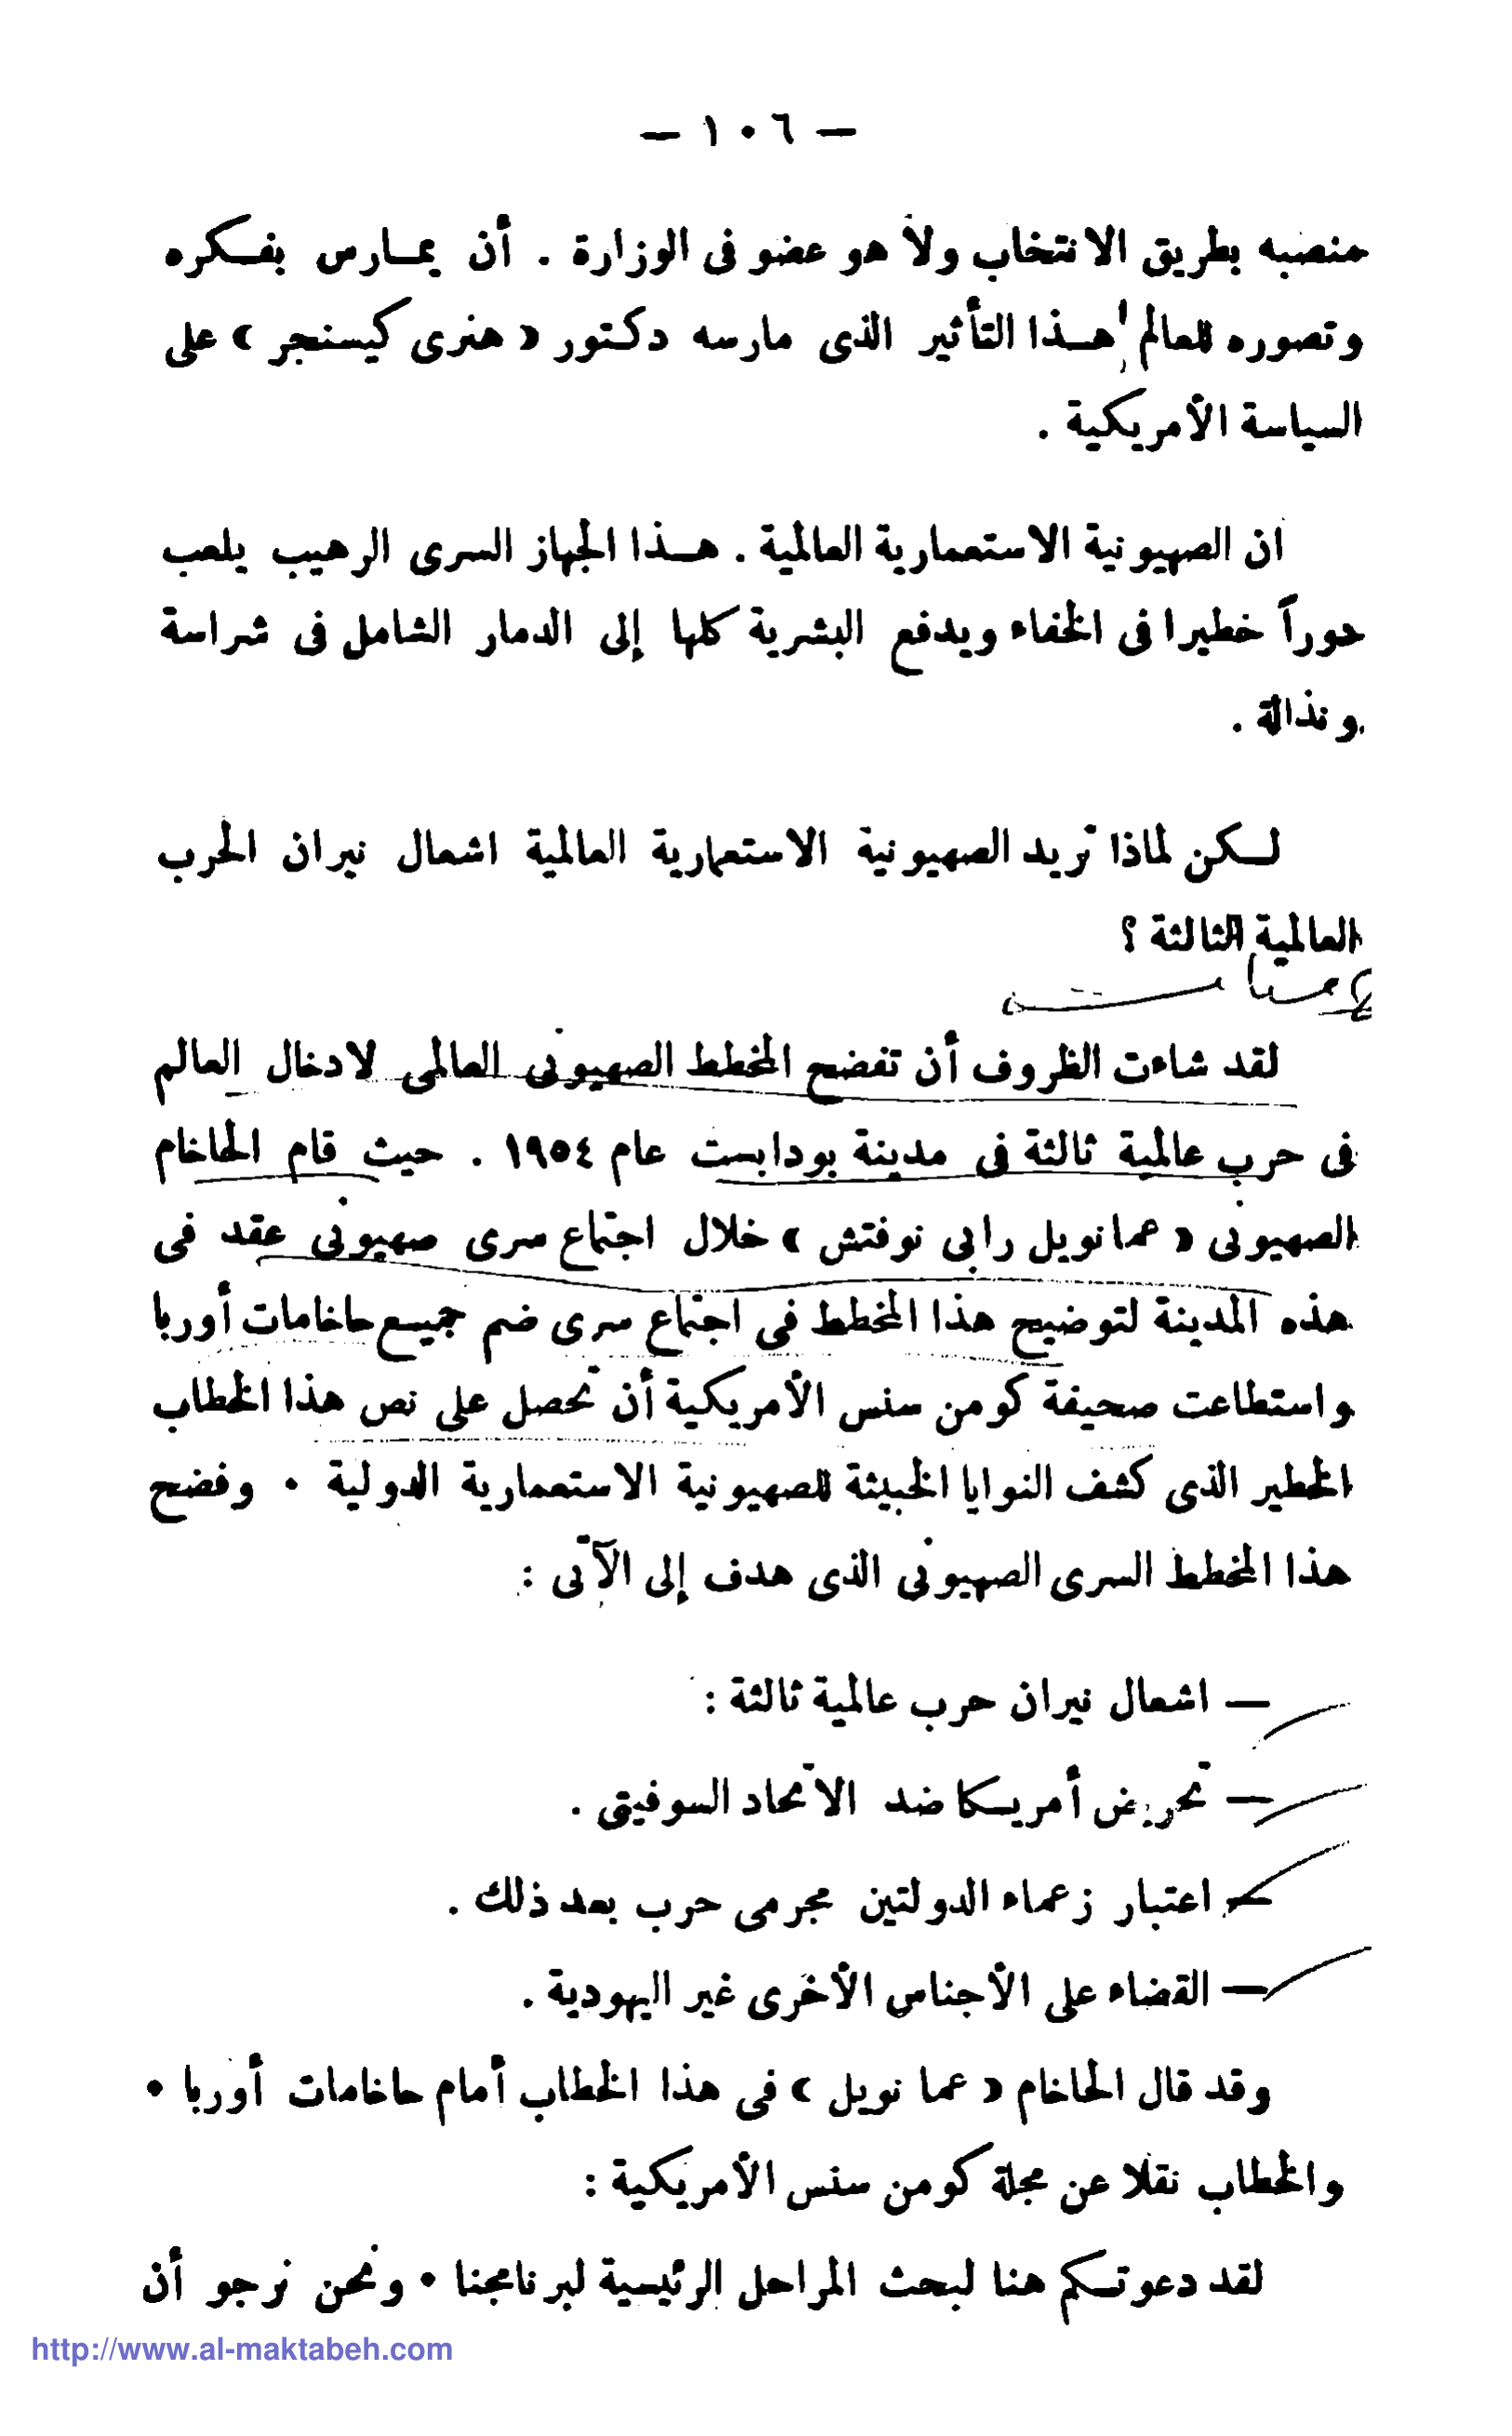 — ١٠٦ —
منصبه بطريق الانتخاب ولا هو عضو فى الوزارة . أن يمـارس بفـكره
وتصوره للعالم هـذا التأثير الذى مارسه دكتور « هنرى كيسنجر » على
السياسة الأمريكية .
ان الصهيونية الاستعمارية العالمية . هـذا الجهاز السرى الرهيب يلعب
دوراً خطيرا فى الخفاء ويدفع البشرية كلها إلى الدمار الشامل فى شراسة
ونذالة .
لـكن لماذا تريد الصهيونية الاستعمارية العالمية اشعال نيران الحرب
العالمية الثالثة ؟
لقد شاءت الظروف أن تفضح المخطط الصهيونى العالمى لادخال العالم
فى حرب عالمية ثالثة فى مدينة بودابست عام ١٩٥٤ . حيث قام الحاخام
الصهيونى « عمانويل رابى نوفتش » خلال اجتماع سرى صهيونى عقد فى
هذه المدينة لتوضيح هذا المخطط فى اجتماع سرى ضم جميع حاخامات أوربا
واستطاعت صحيفة كومن سنس الأمريكية أن تحصل على نص هذا الخطاب
الخطير الذى كشف النوايا الخبيثة للصهيونية الاستعمارية الدولية . وفضح
هذا المخطط السرى الصهيونى الذى هدف إلى الآتى :
— اشعال نيران حرب عالمية ثالثة :
— تحريض أمريـكا ضد الاتحاد السوفيتى .
— اعتبار زعماء الدولتين مجرمى حرب بعد ذلك .
— القضاء على الأجناس الأخرى غير اليهودية .
وقد قال الحاخام « عما نويل » فى هذا الخطاب أمام حاخامات أوربا .
والخطاب نقلا عن مجلة كومن سنس الأمريكية :
لقد دعوتـكم هنا لبحث المراحل الرئيسية لبرنامجنا . ونحن نرجو أن
http://www.al-maktabeh.com